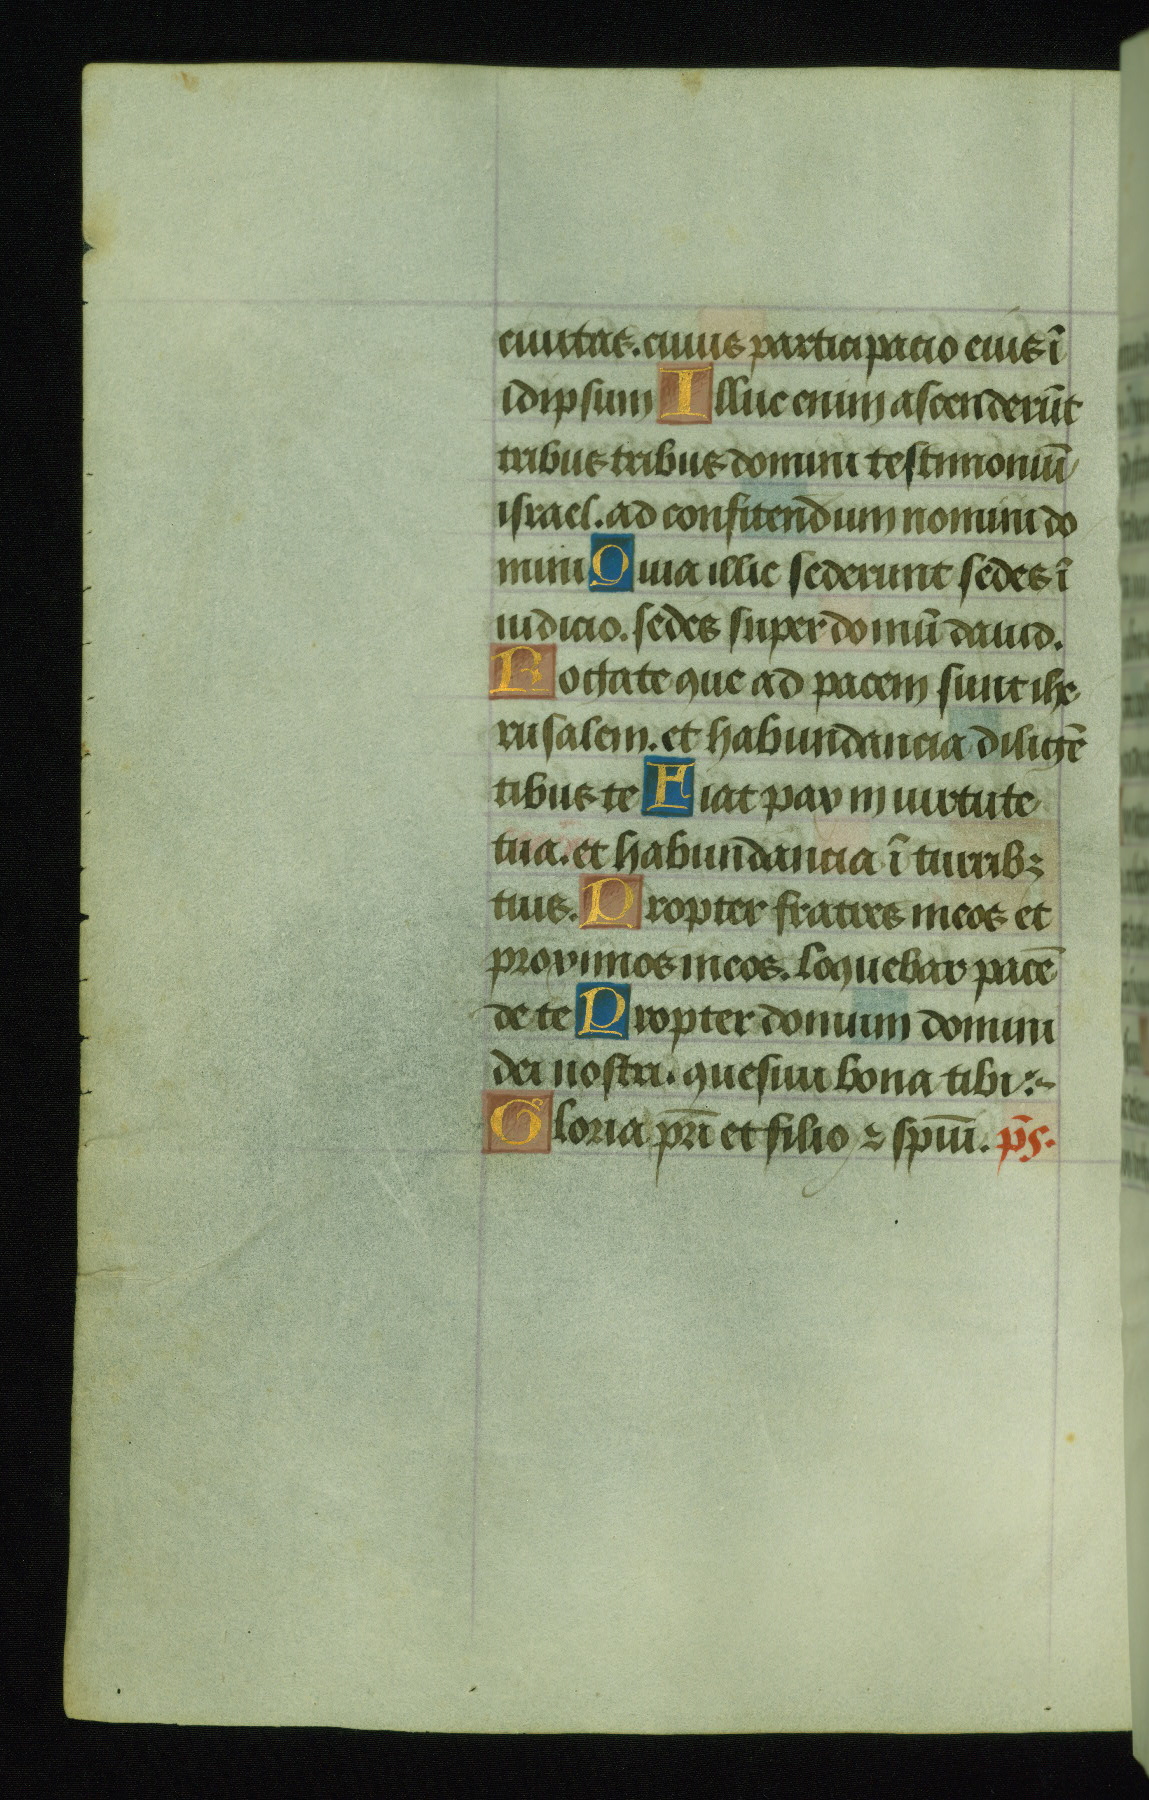 ciuitas. cuius participacio eius ī
idipsum Illuc enim ascenderūt
tribus tribus domini testimoniū
israel. ad confitendum nomini do
mini Quia illic sederunt sedes ī
iudicio. sedes super domū dauid.
Rogate que ad pacem sunt ihe
rusalem. et habundancia diligē
tibus te Fiat pax in uirtute
tua. et habundancia ī turribꝫ
tuis. Propter fratres meos et
proximos meos. loquebar pacē
de te Propter domum domini
dei nostri. quesiui bona tibi :~
Gloria pr̄i et filio ⁊ spūi. p̄s.